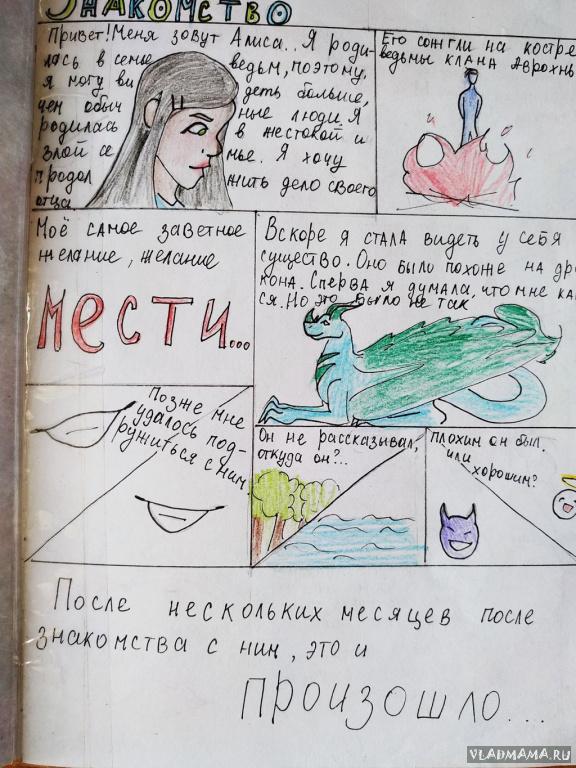 Знакомство
Привет! Меня зовут Алиса.. Я роди-
лась в семье ведьм, поэтому,
я могу видеть больше,
чем обычные люди. Я
родилась в жестокой и
злой семье. Я хочу
продолжить дело своего
отца
Его сожгли на костре
ведьмы клана
Моё самое заветное
желание, желание
мести...
Вскоре я стала видеть у себя
существо. Оно было похоже на дра
кона. Сперва я думала, что мне ка
ся. Но это было не так
Позже мне
удалось под-
ружиться с ним
Он не рассказывал,
откуда он?...
плохим он был.
или
хорошим?
После нескольких месяцев после
знакомства с ним, это и
произошло....
VLADMAMA.RU